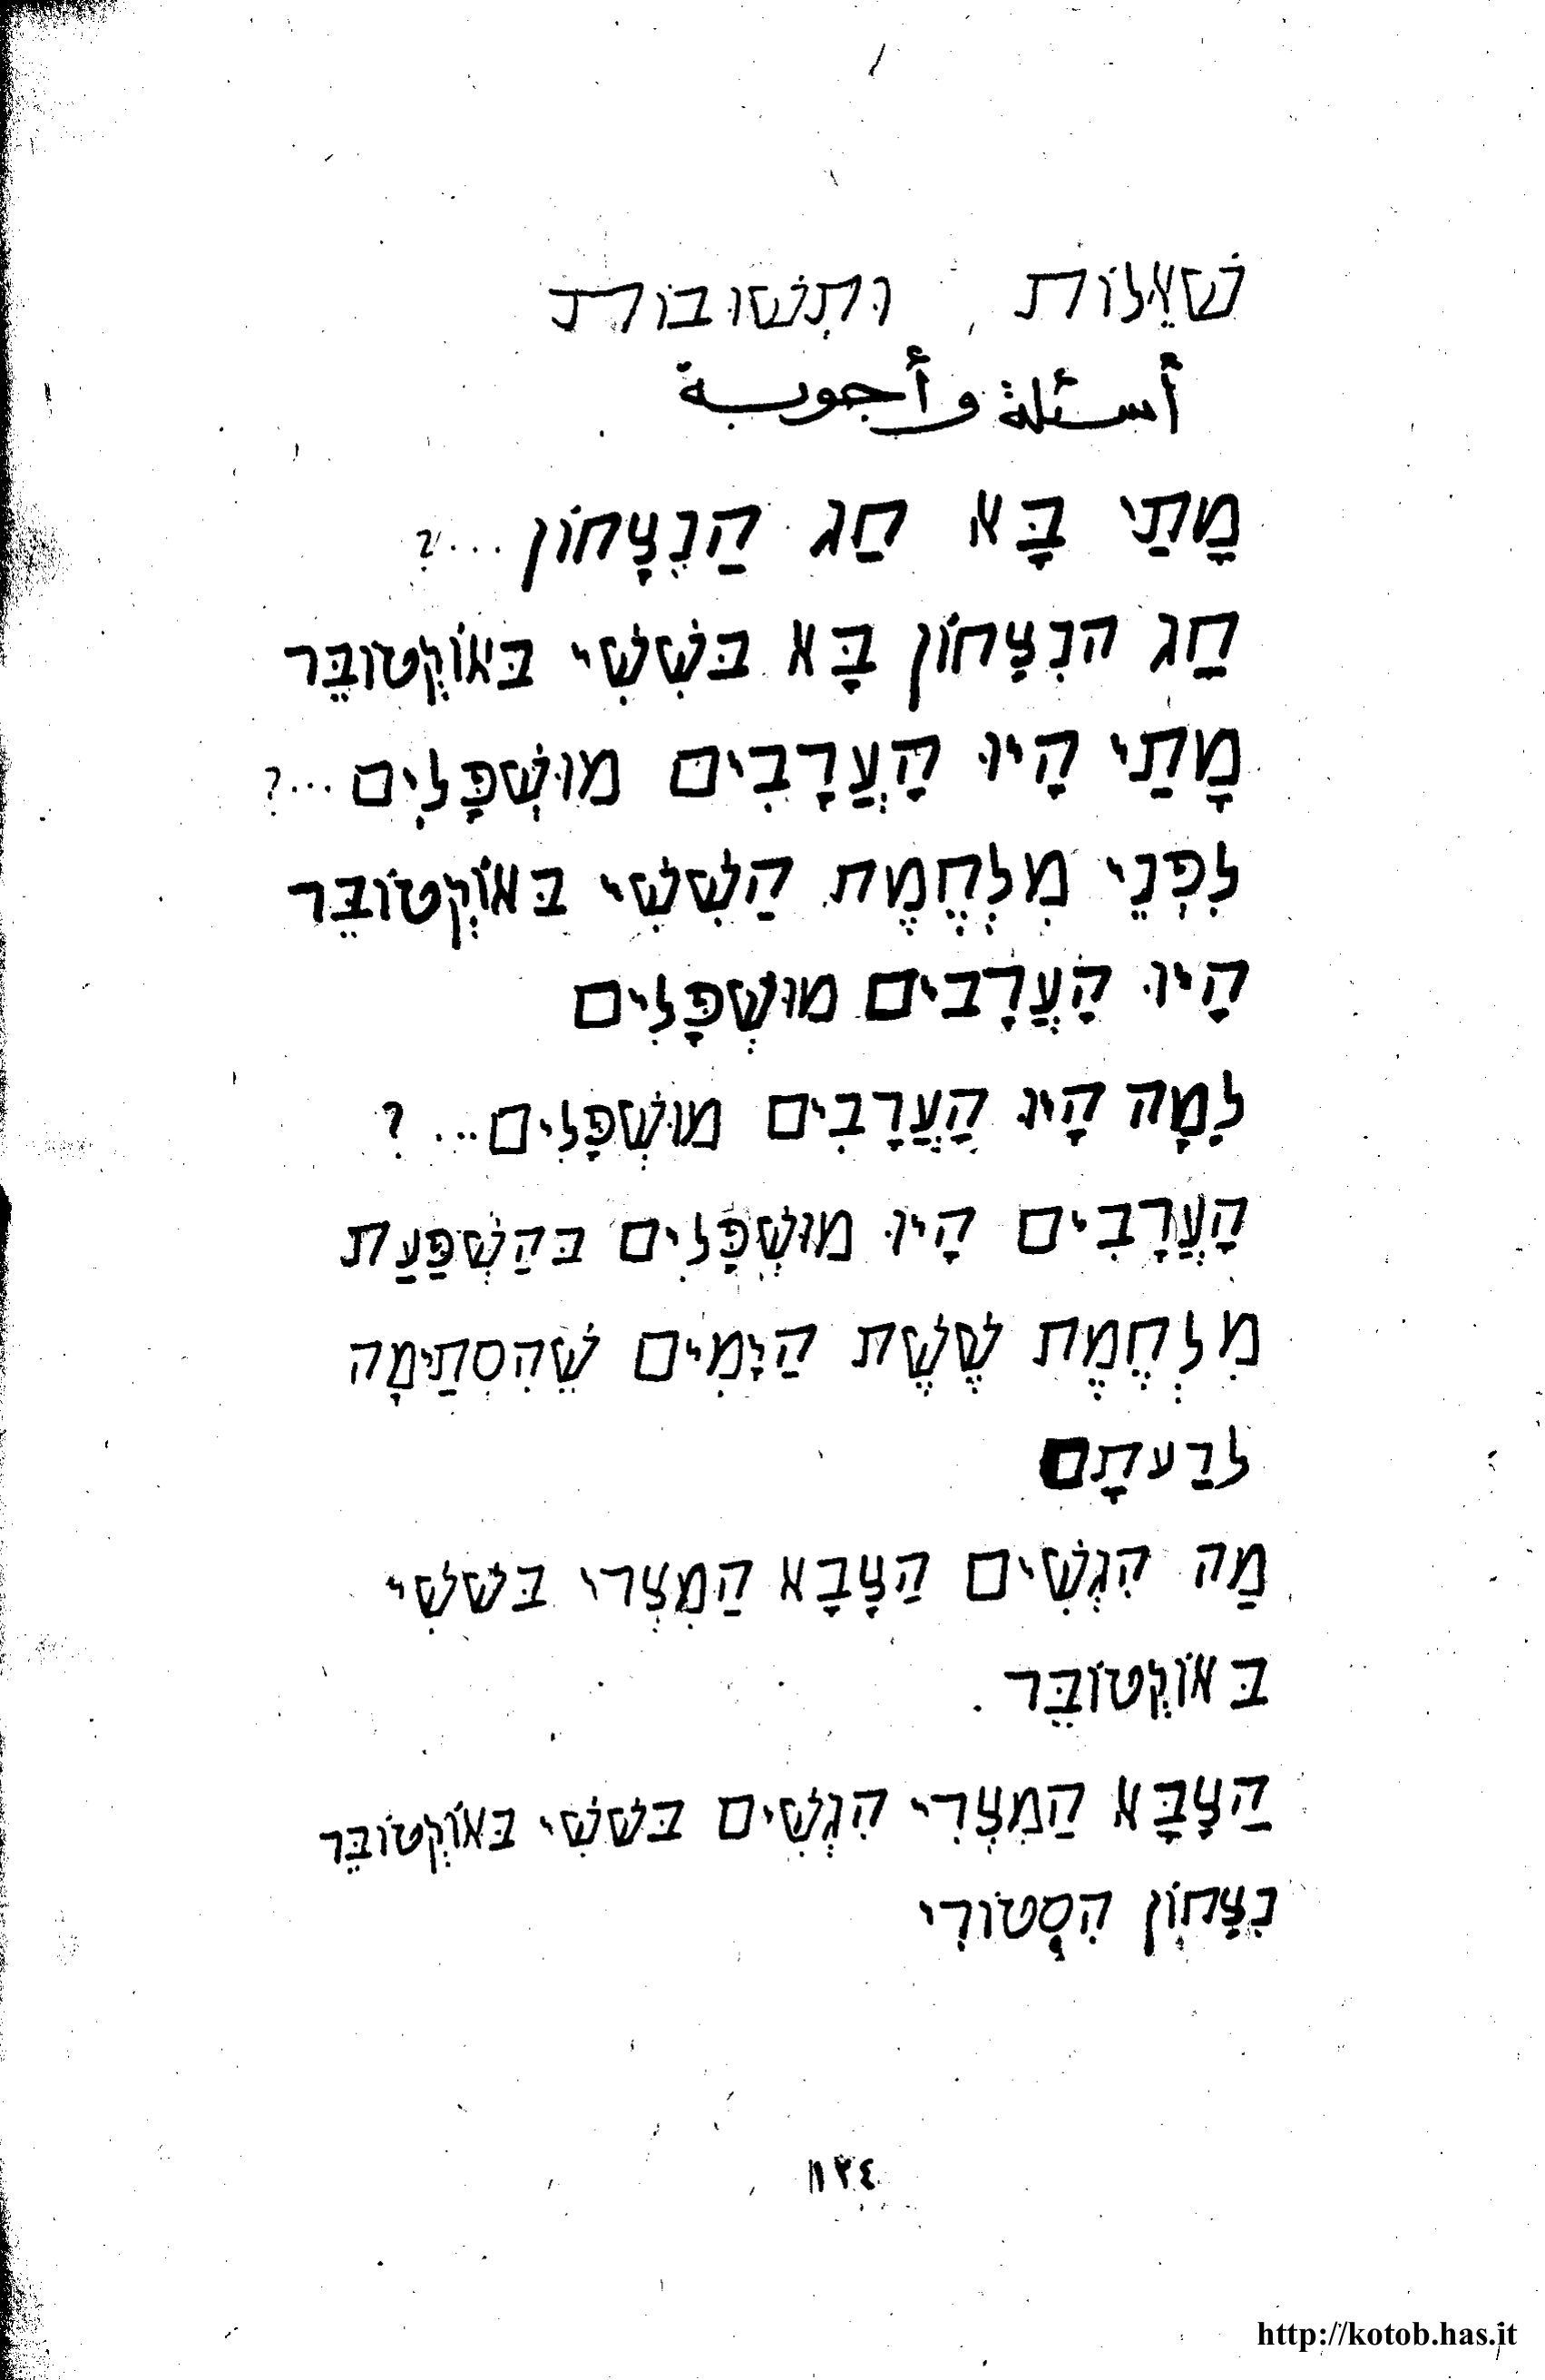 שְׁאֵלוֹת וּתְשׁוּבוֹת
أسئلة وأجوبة
מָתַי בָּא חַג הַנִצָחוֹן ...?
חַג הנִצָחוֹן בָּא בּשִׁשִׁי בּאוֹקְטוֹבֵּר
מָתַי הָיוּ הָעֲרָבִים מוּשְׁפָּלִים ...?
לִפְנֵי מִלְחֱמֶת הַשִׁשִׁי בּאוֹקְטוֹבֵּר
הָיוּ הָעֲרָבים מוּשְׁפָּלִים
לָמָה הָיוּ הָעֲרָבִים מוּשְׁפָּלִים ...?
הָעֲרָבִים הָיוּ מוּשְׁפָּלִים בּהַשְׁפַּעַת
מִלְחֶמֶת שֶׁשֶׁת הַיָמִים שֶׁהִסְתַיּמָה
לרַעתָם
מַה הִגְשִׁים הַצָבָא הַמִצְרי בּשׁשִׁי
בּאוֹקְטוֹבֵּר .
הַצָבָּא הַמִצְרִי הִגְשִׁים בּשׁשִׁי בּאוֹקְטוֹבֵּר
נִצָחוֹן הִסְטוֹרִי
١٢٤
http://kotob.has.it